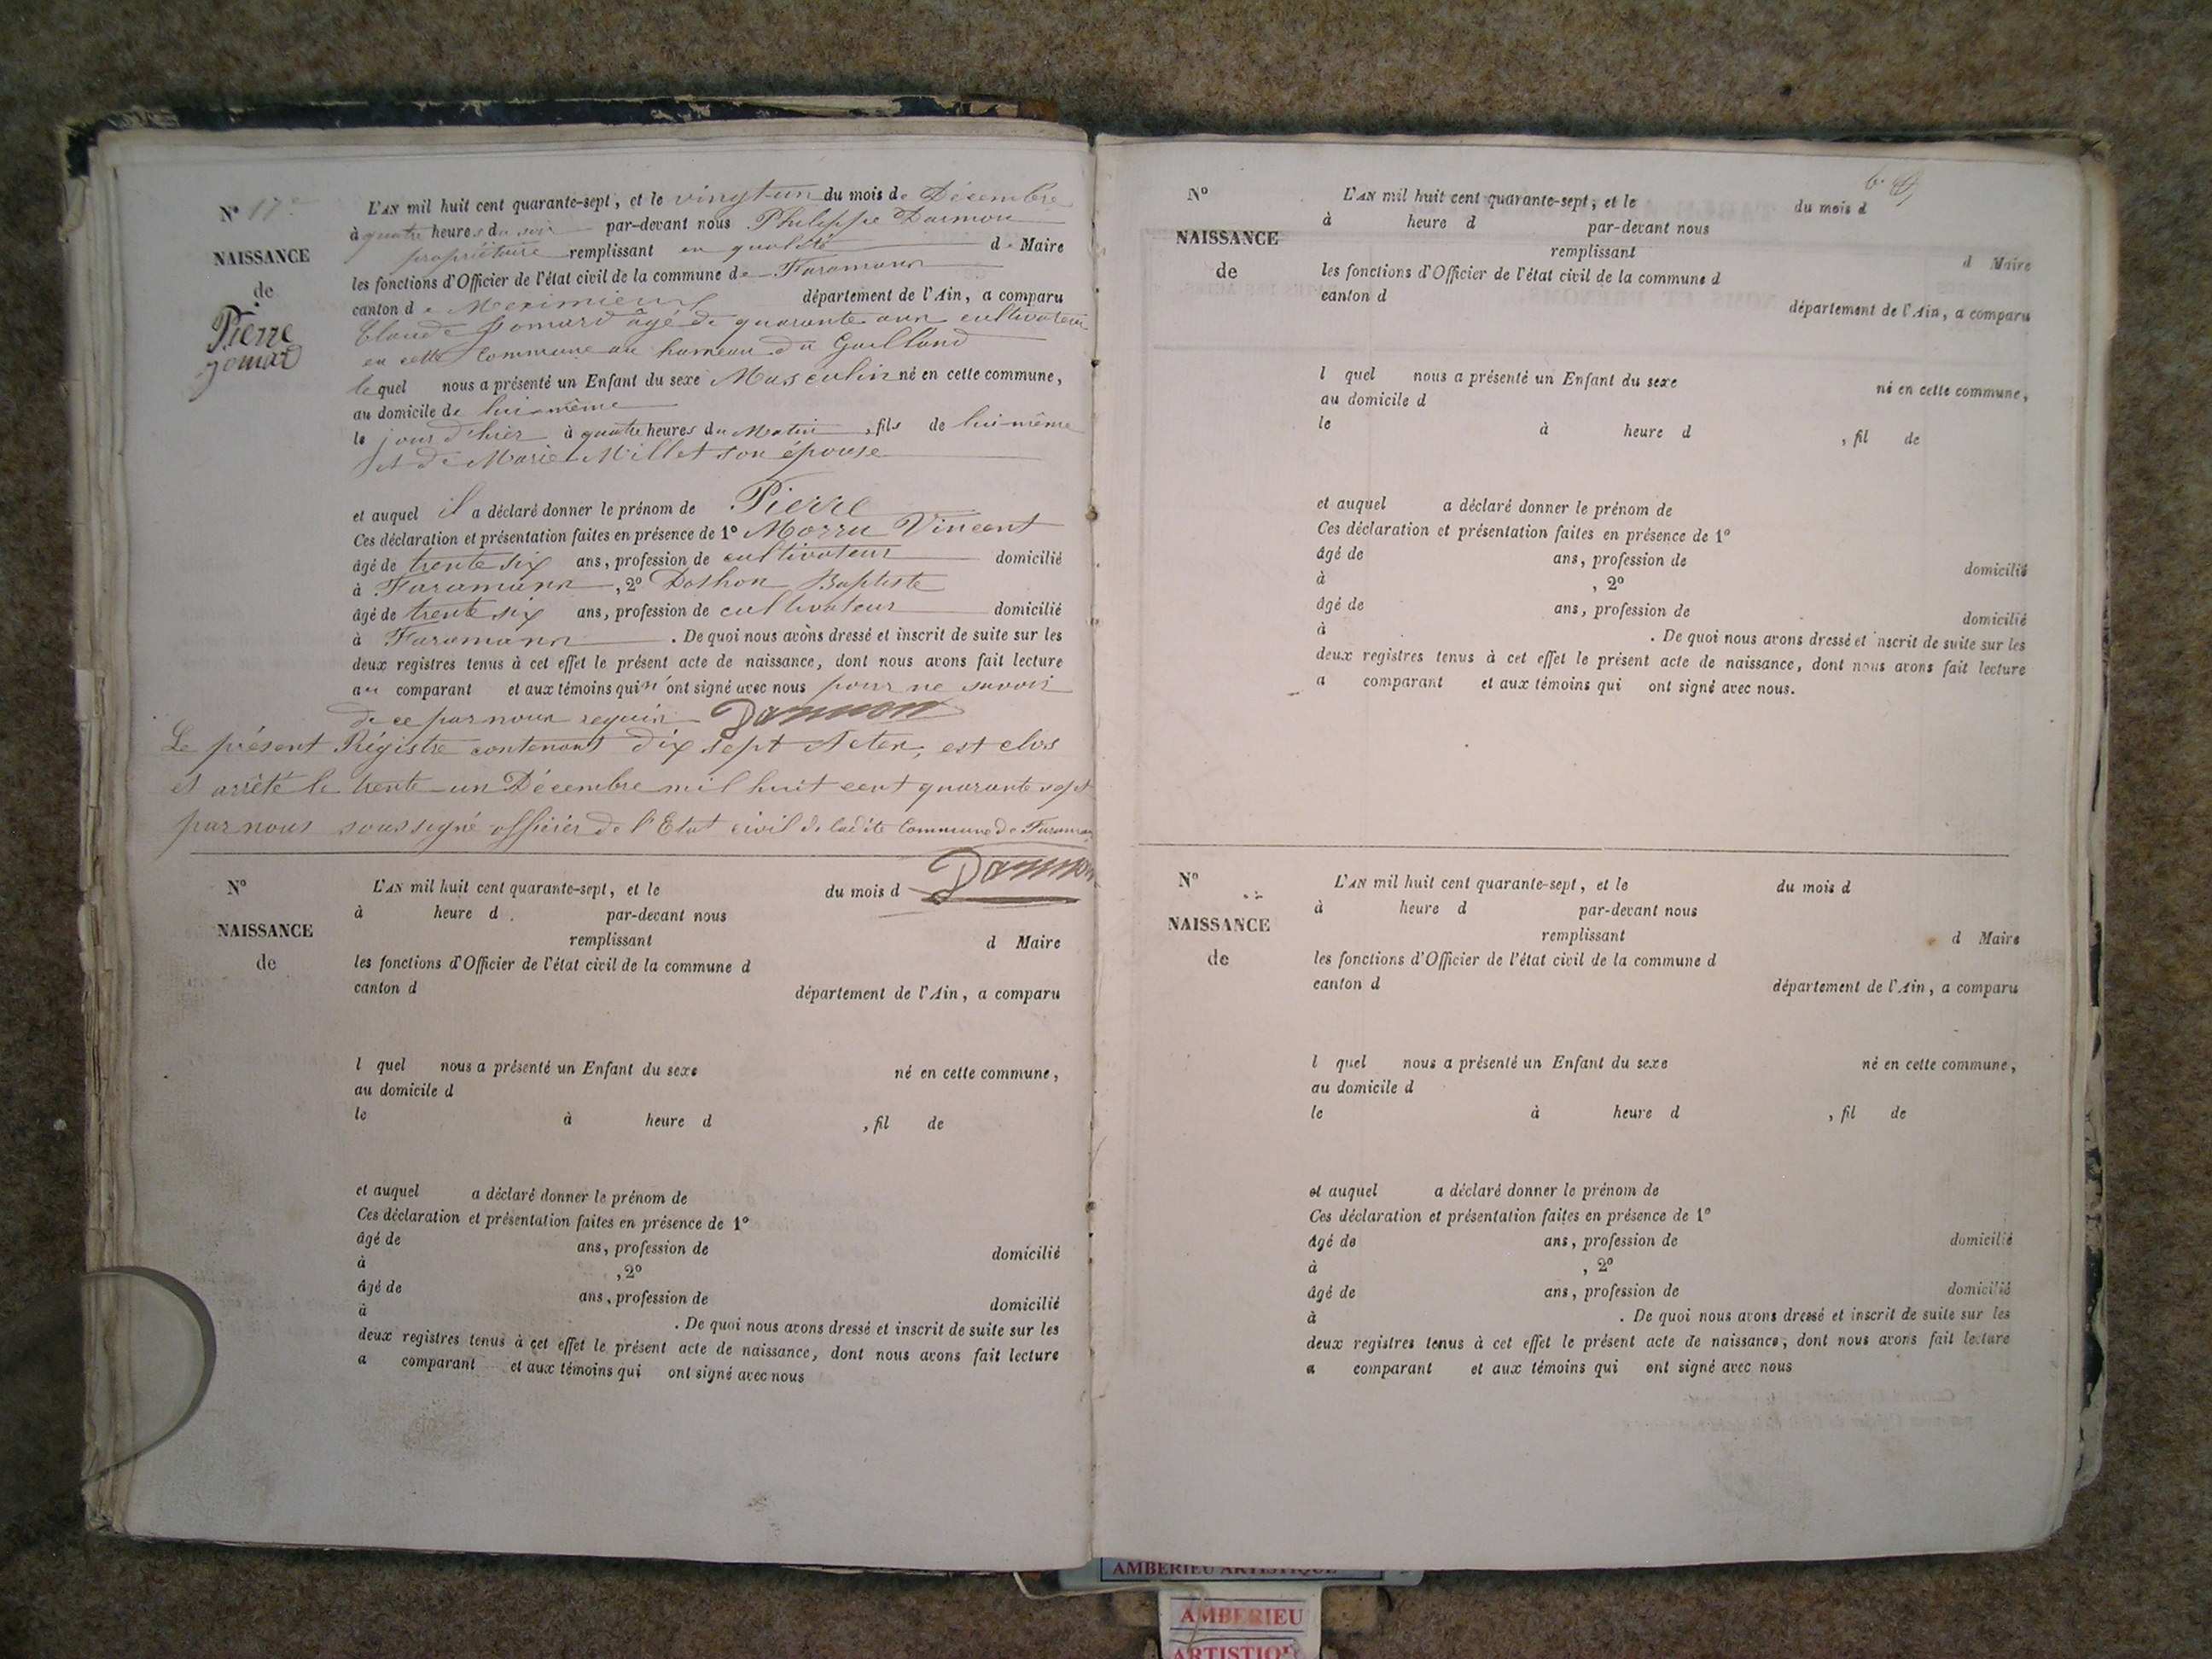 N° 17e
NAISSANCE
de
Pierre
Jomard
L'AN mil huit cent quarante-sept, et le vingt-un du mois de Décembre
à quatre heures du soir par-devant nous Philippe Darmon
propriétaire remplissant en qualité de Maire
les fonctions d'Officier de l'état civil de la commune de Faramans
canton de Meximieux département de l'Ain, a comparu
Claude Jomard âgé de quarante ans cultivateur
en cette Commune au hameau du
lequel nous a présenté un Enfant du sexe Masculin né en cette commune,
au domicile de lui-même
le jour d'hier à quatre heures du Matin, fils de lui-même
et de Marie Millet son épouse
et auquel il a déclaré donner le prénom de Pierre
Ces déclaration et présentation faites en présence de 1° Vincent
âgé de trente six ans, profession de cultivateur domicilié
à Faramans, 2° Baptiste
âgé de trente six ans, profession de cultivateur domicilié
à Faramans. De quoi nous avons dressé et inscrit de suite sur les
deux registres tenus à cet effet le présent acte de naissance, dont nous avons fait lecture
au comparant et aux témoins qui n'ont signé avec nous pour ne savoir
de ce par nous requis Darmon
Le présent Régistre contenant dix sept Actes, est clos
et arrêté le trente-un Décembre mil huit cent quarante sept
par nous soussigné officier de l'Etat civil de ladite Commune de Faramans
Darmon
N°
NAISSANCE
de
L'AN mil huit cent quarante-sept, et le du mois d
à heure d par-devant nous
remplissant d Maire
les fonctions d'Officier de l'état civil de la commune d
canton d département de l'Ain, a comparu
l quel nous a présenté un Enfant du sexe né en cette commune,
au domicile d
le à heure d , fil de
et auquel a déclaré donner le prénom de
Ces déclaration et présentation faites en présence de 1°
âgé de ans, profession de domicilié
à , 2°
âgé de ans, profession de domicilié
à . De quoi nous avons dressé et inscrit de suite sur les
deux registres tenus à cet effet le présent acte de naissance, dont nous avons fait lecture
a comparant et aux témoins qui ont signé avec nous
N°
NAISSANCE
de
L'AN mil huit cent quarante-sept, et le du mois d
à heure d par-devant nous
remplissant d Maire
les fonctions d'Officier de l'état civil de la commune d
canton d département de l'Ain, a comparu
l quel nous a présenté un Enfant du sexe né en cette commune,
au domicile d
le à heure d , fil de
et auquel a déclaré donner le prénom de
Ces déclaration et présentation faites en présence de 1°
âgé de ans, profession de domicilié
à , 2°
âgé de ans, profession de domicilié
à . De quoi nous avons dressé et inscrit de suite sur les
deux registres tenus à cet effet le présent acte de naissance, dont nous avons fait lecture
a comparant et aux témoins qui ont signé avec nous.
N°
NAISSANCE
de
L'AN mil huit cent quarante-sept, et le du mois d
à heure d par-devant nous
remplissant d Maire
les fonctions d'Officier de l'état civil de la commune d
canton d département de l'Ain, a comparu
l quel nous a présenté un Enfant du sexe né en cette commune,
au domicile d
le à heure d , fil de
et auquel a déclaré donner le prénom de
Ces déclaration et présentation faites en présence de 1°
âgé de ans, profession de domicilié
à , 2°
âgé de ans, profession de domicilié
à . De quoi nous avons dressé et inscrit de suite sur les
deux registres tenus à cet effet le présent acte de naissance, dont nous avons fait lecture
a comparant et aux témoins qui ont signé avec nous
AMBERIEU ARTISTIQUE
AMBERIEU
ARTISTIQUE